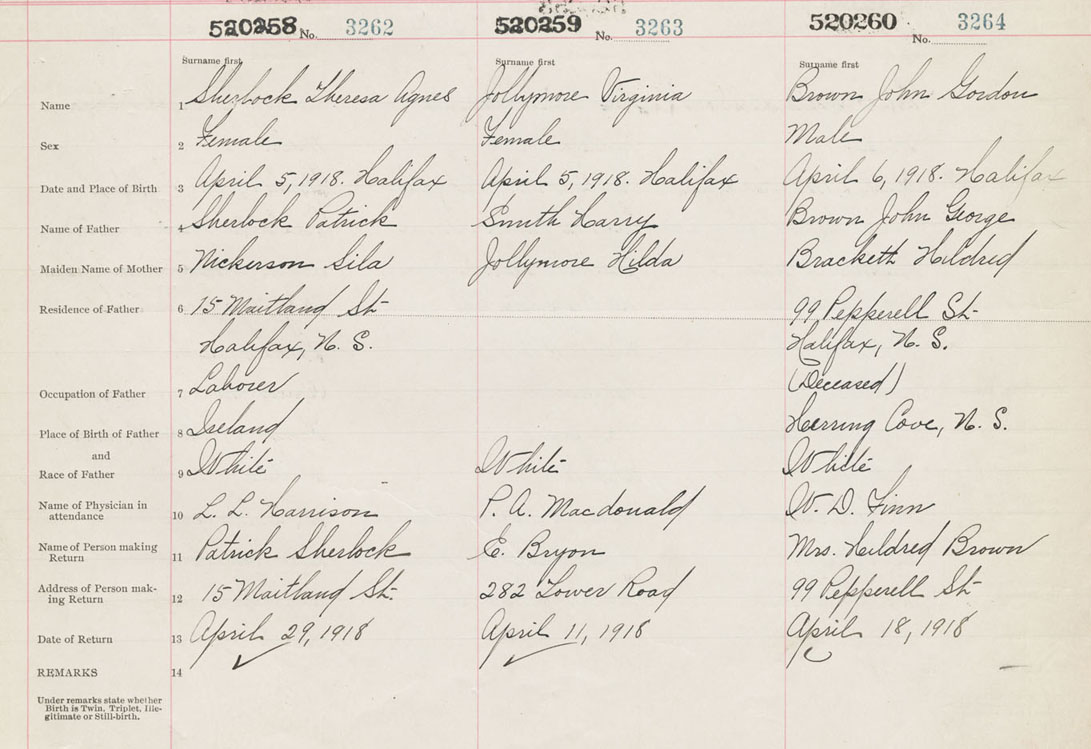 520258 No. 3262 520259 No. 3263 520260 No. 3264
Surname first Surname first Surname first
Name 1 Sherlock Theresa Agnes Jollymore Virginia Brown John Gordon
Sex 2 Female Female Male
Date and Place of Birth 3 April 5, 1918. Halifax April 5, 1918. Halifax April 6, 1918. Halifax
Name of Father 4 Sherlock Patrick Smith Harry Brown John George
Maiden Name of Mother 5 Nickerson Lila Jollymore Hilda Brackett Hildred
Residence of Father 6 15 Maitland St- 99 Pepperell St-
Halifax, N. S. Halifax, N. S.
Occupation of Father 7 Laborer (Deceased)
Place of Birth of Father 8 Ireland Herring Cove, N. S.
and
Race of Father 9 White White White
Name of Physician in
attendance 10 L. L. Harrison P. A. Macdonald W. D. Finn
Name of Person making
Return 11 Patrick Sherlock E. Bryon Mrs. Hildred Brown
Address of Person mak-
ing Return 12 15 Maitland St. 282 Tower Road 99 Pepperell St-
Date of Return 13 April 29, 1918 April 11, 1918 April 18, 1918
REMARKS 14
Under remarks state whether
Birth is Twin, Triplet, Ille-
gitimate or Still-birth.